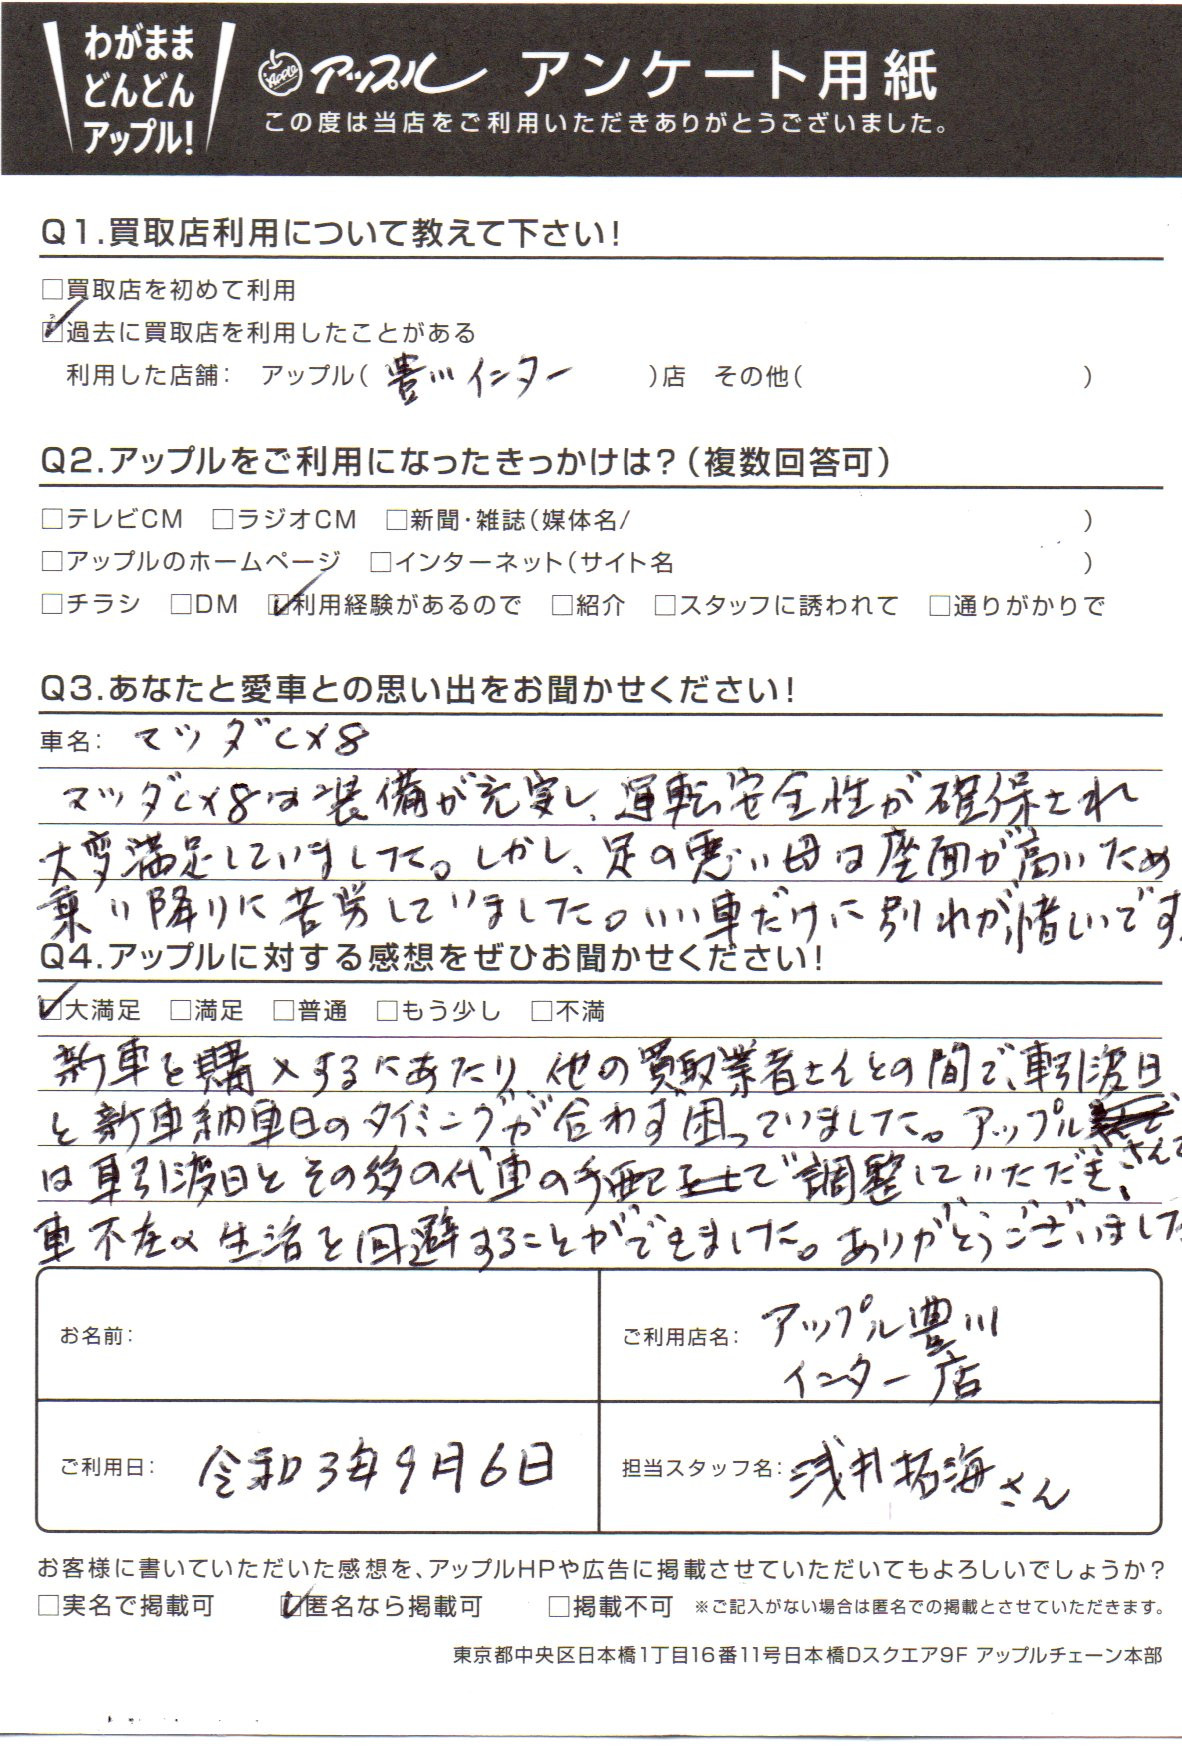 わがまま
どんどん
アップル!
Apple アップル アンケート用紙
この度は当店をご利用いただきありがとうございました。
Q1.買取店利用について教えて下さい!
□買取店を初めて利用
☑過去に買取店を利用したことがある
利用した店舗: アップル( 豊川インター )店 その他( )
Q2.アップルをご利用になったきっかけは?(複数回答可)
□テレビCM □ラジオCM □新聞・雑誌(媒体名/ )
□アップルのホームページ □インターネット(サイト名 )
□チラシ □DM ☑利用経験があるので □紹介 □スタッフに誘われて □通りがかりで
Q3.あなたと愛車との思い出をお聞かせください!
車名: マツダCX8
マツダCX8は装備が充実し、運転安全性が確保され
大変満足していました。しかし、足の悪い母は座面が高いため
乗り降りに苦労していました。いい車だけに別れが惜しいです。
Q4.アップルに対する感想をぜひお聞かせください!
☑大満足 □満足 □普通 □もう少し □不満
新車を購入するにあたり、他の買取業者さんとの間で、車引渡日
と新車納車日のタイミングが合わず困っていました。アップルさんで
は車引渡日とその後の代車の手配まで調整していただき、
車不在の生活を回避することができました。ありがとうございました
お名前:
ご利用店名: アップル豊川
インター店
ご利用日: 令和3年9月6日
担当スタッフ名: 浅井拓海さん
お客様に書いていただいた感想を、アップルHPや広告に掲載させていただいてもよろしいでしょうか?
□実名で掲載可 ☑匿名なら掲載可 □掲載不可 ※ご記入がない場合は匿名での掲載とさせていただきます。
東京都中央区日本橋1丁目16番11号日本橋Dスクエア9F アップルチェーン本部